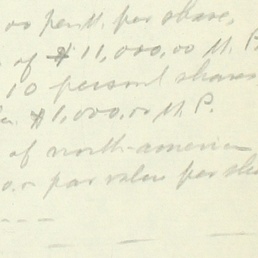 00 per share,
of $11,000.00 M. P.
10 personal shares
$1,000.00 M P.
of north-america
par value per sha